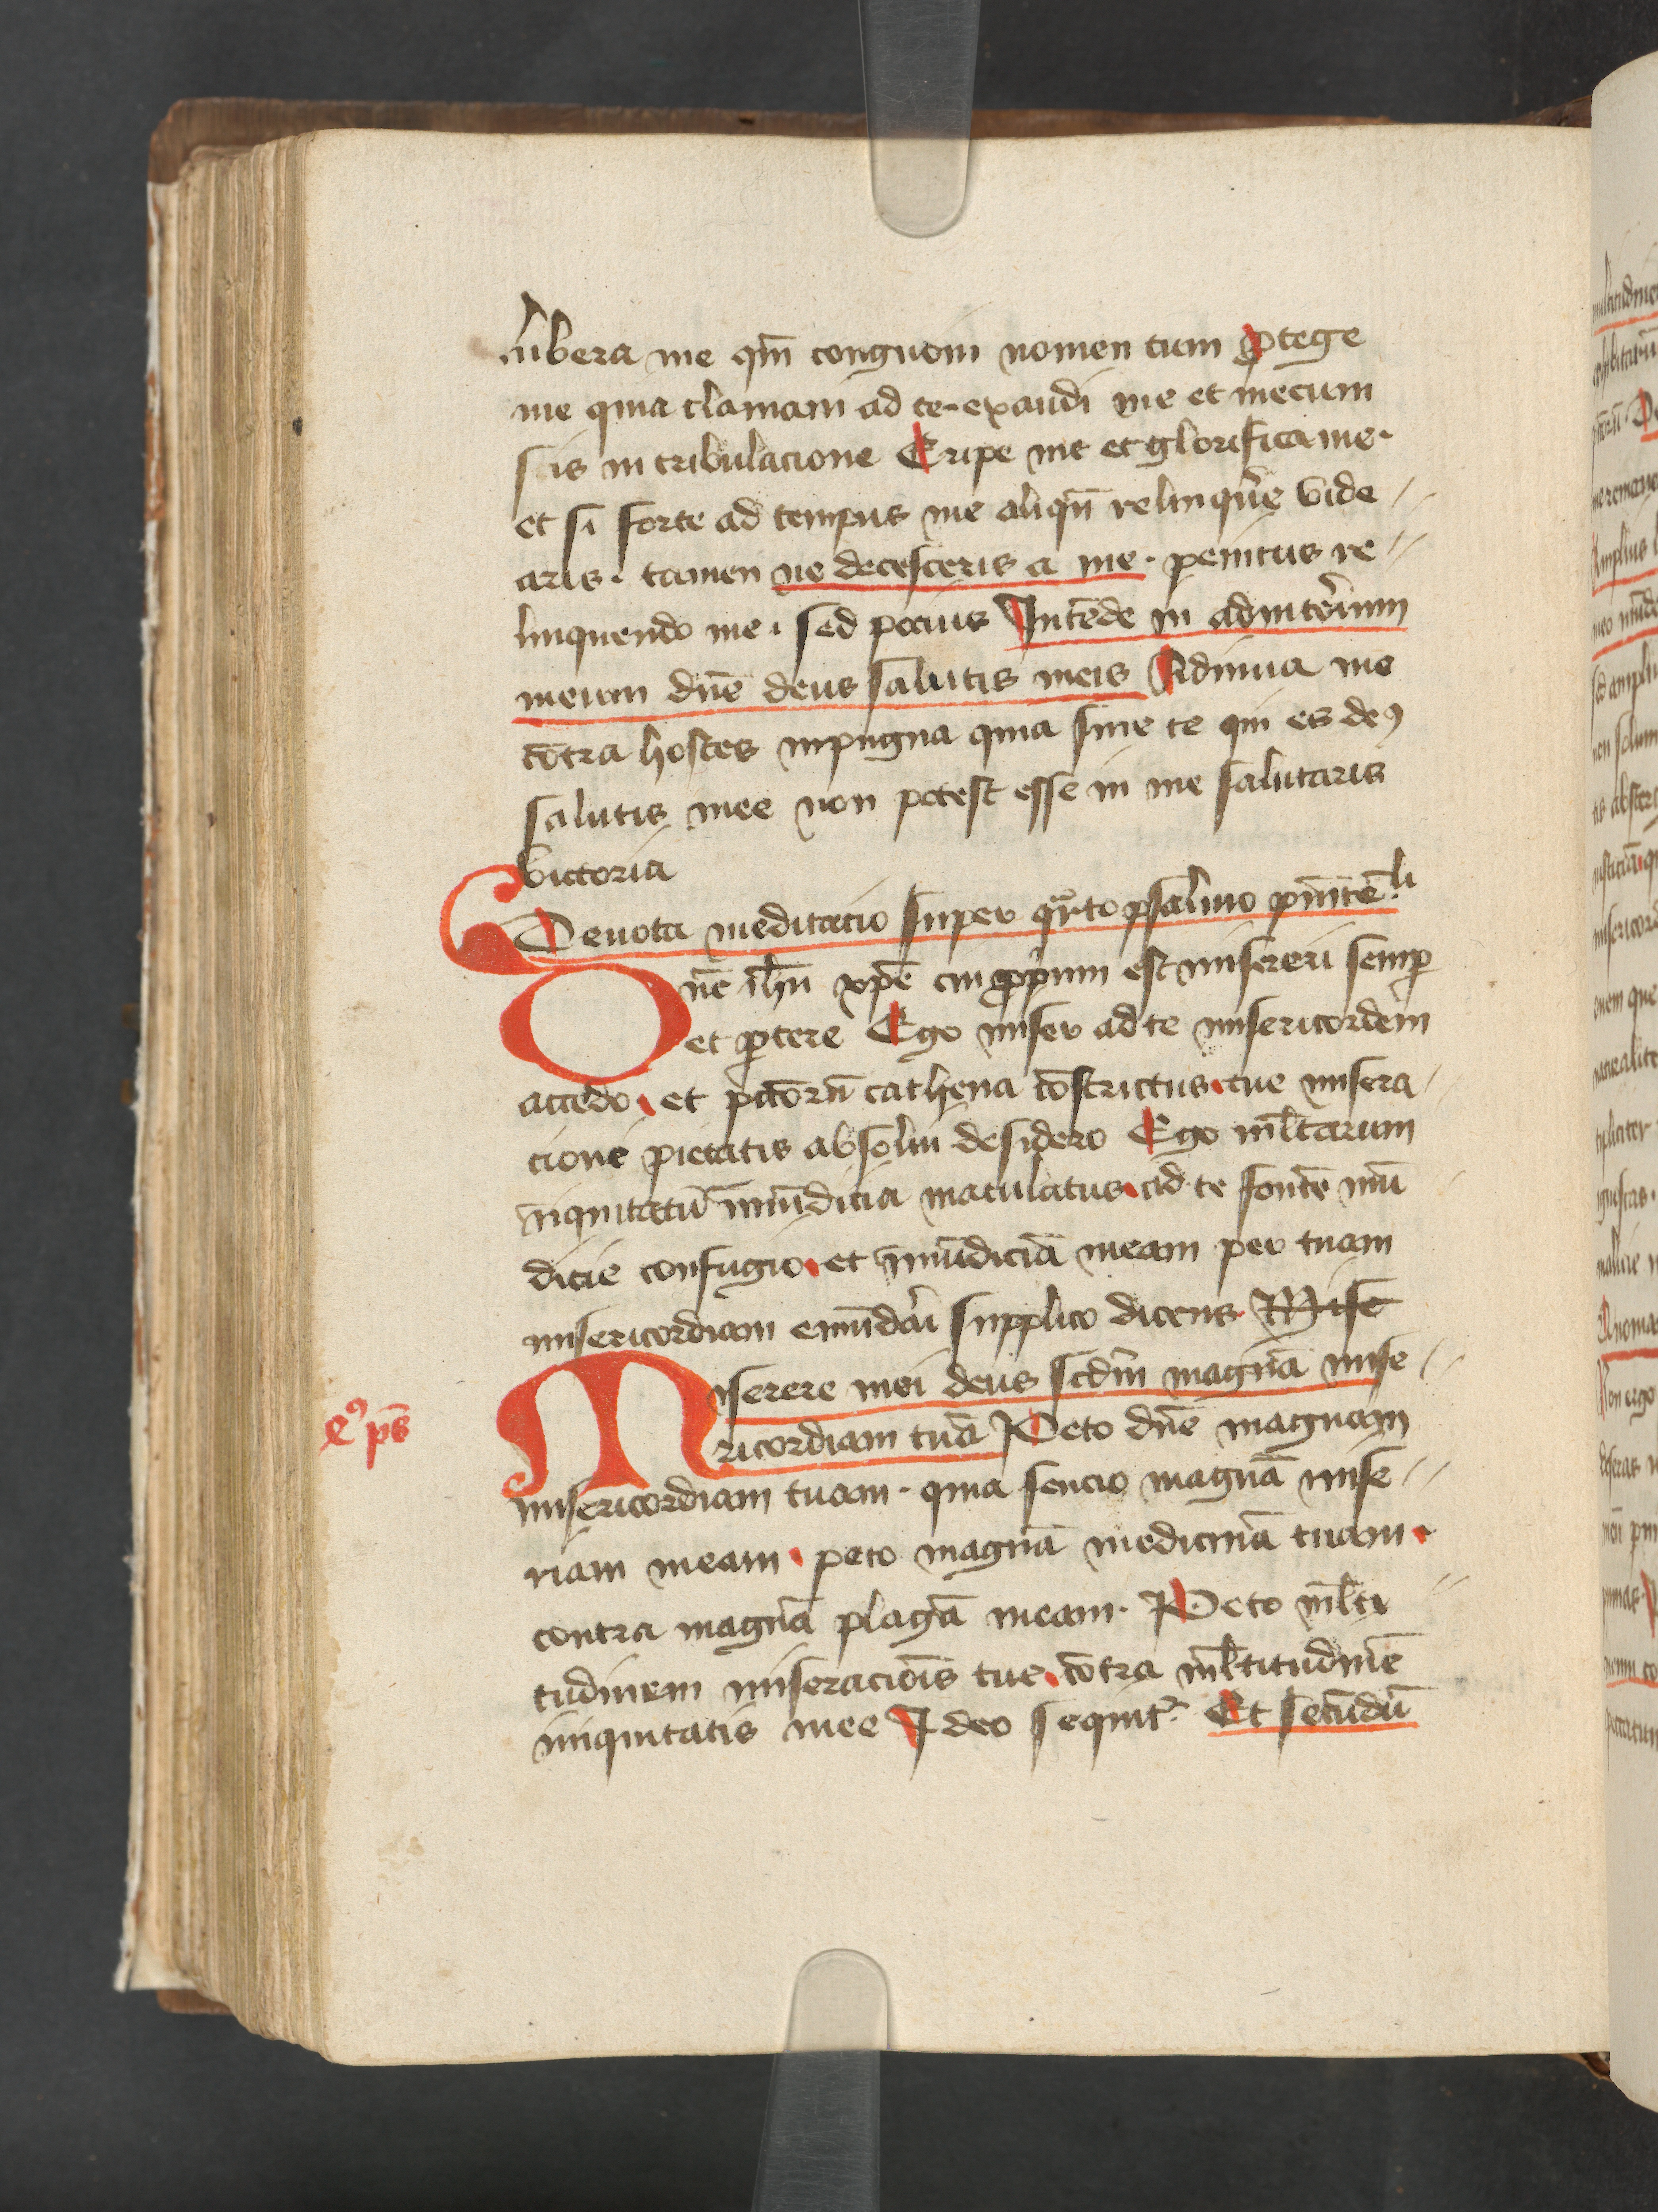 libera me qm̄ congnoui nomen tuum ꝓtege
me quia clamaui ad te· exaudi me et mecum
sis in tribulacione Eripe me et glorifica me·
et si forte ad tempus me aliqn̄ relinqꝰe vide //
aris· tamen ne decesceris a me· penitus re //
linquendo me· sed pocius Intēde in adiutoꝛium
meum dn̄e deus salutis meis Adiuua me
cōtra hostes inpugna quia sine te qui es deꝰ
salutis mee non potest esse in me salutaris
victoria
Deuota meditacio super qrto psalmo pnitē.li
Dn̄e ih̄u xp̄e cui ꝓpium est misereri semꝑ
et ꝑcere Ego miser ad te misericordem
accedo· et pctōrū cathena cōstrictus· tue misera /
cione pietatis absolui desidero Ego ml̄tarum
iniquitatū īmūdicia maculatus· ad te fontē mū /
dicie confugio· et īmūdiciā meam per tuam
misericordiam emūdari supplico dicens Mise
Miserere mei deus scdm̄ magnā mise //
ricordiam tuā Peto dn̄e magnam
eꝰ ps̄
misericordiam tuam· quia sencio magnā mise //
riam meam· peto magnā medicinā tuam·
contra magnā plagā meam· Peto ml̄ti //
tudinem miseraciōis tue· cōtra ml̄titudinē
iniquitatis mee Ideo sequit᷑ Et secūdū